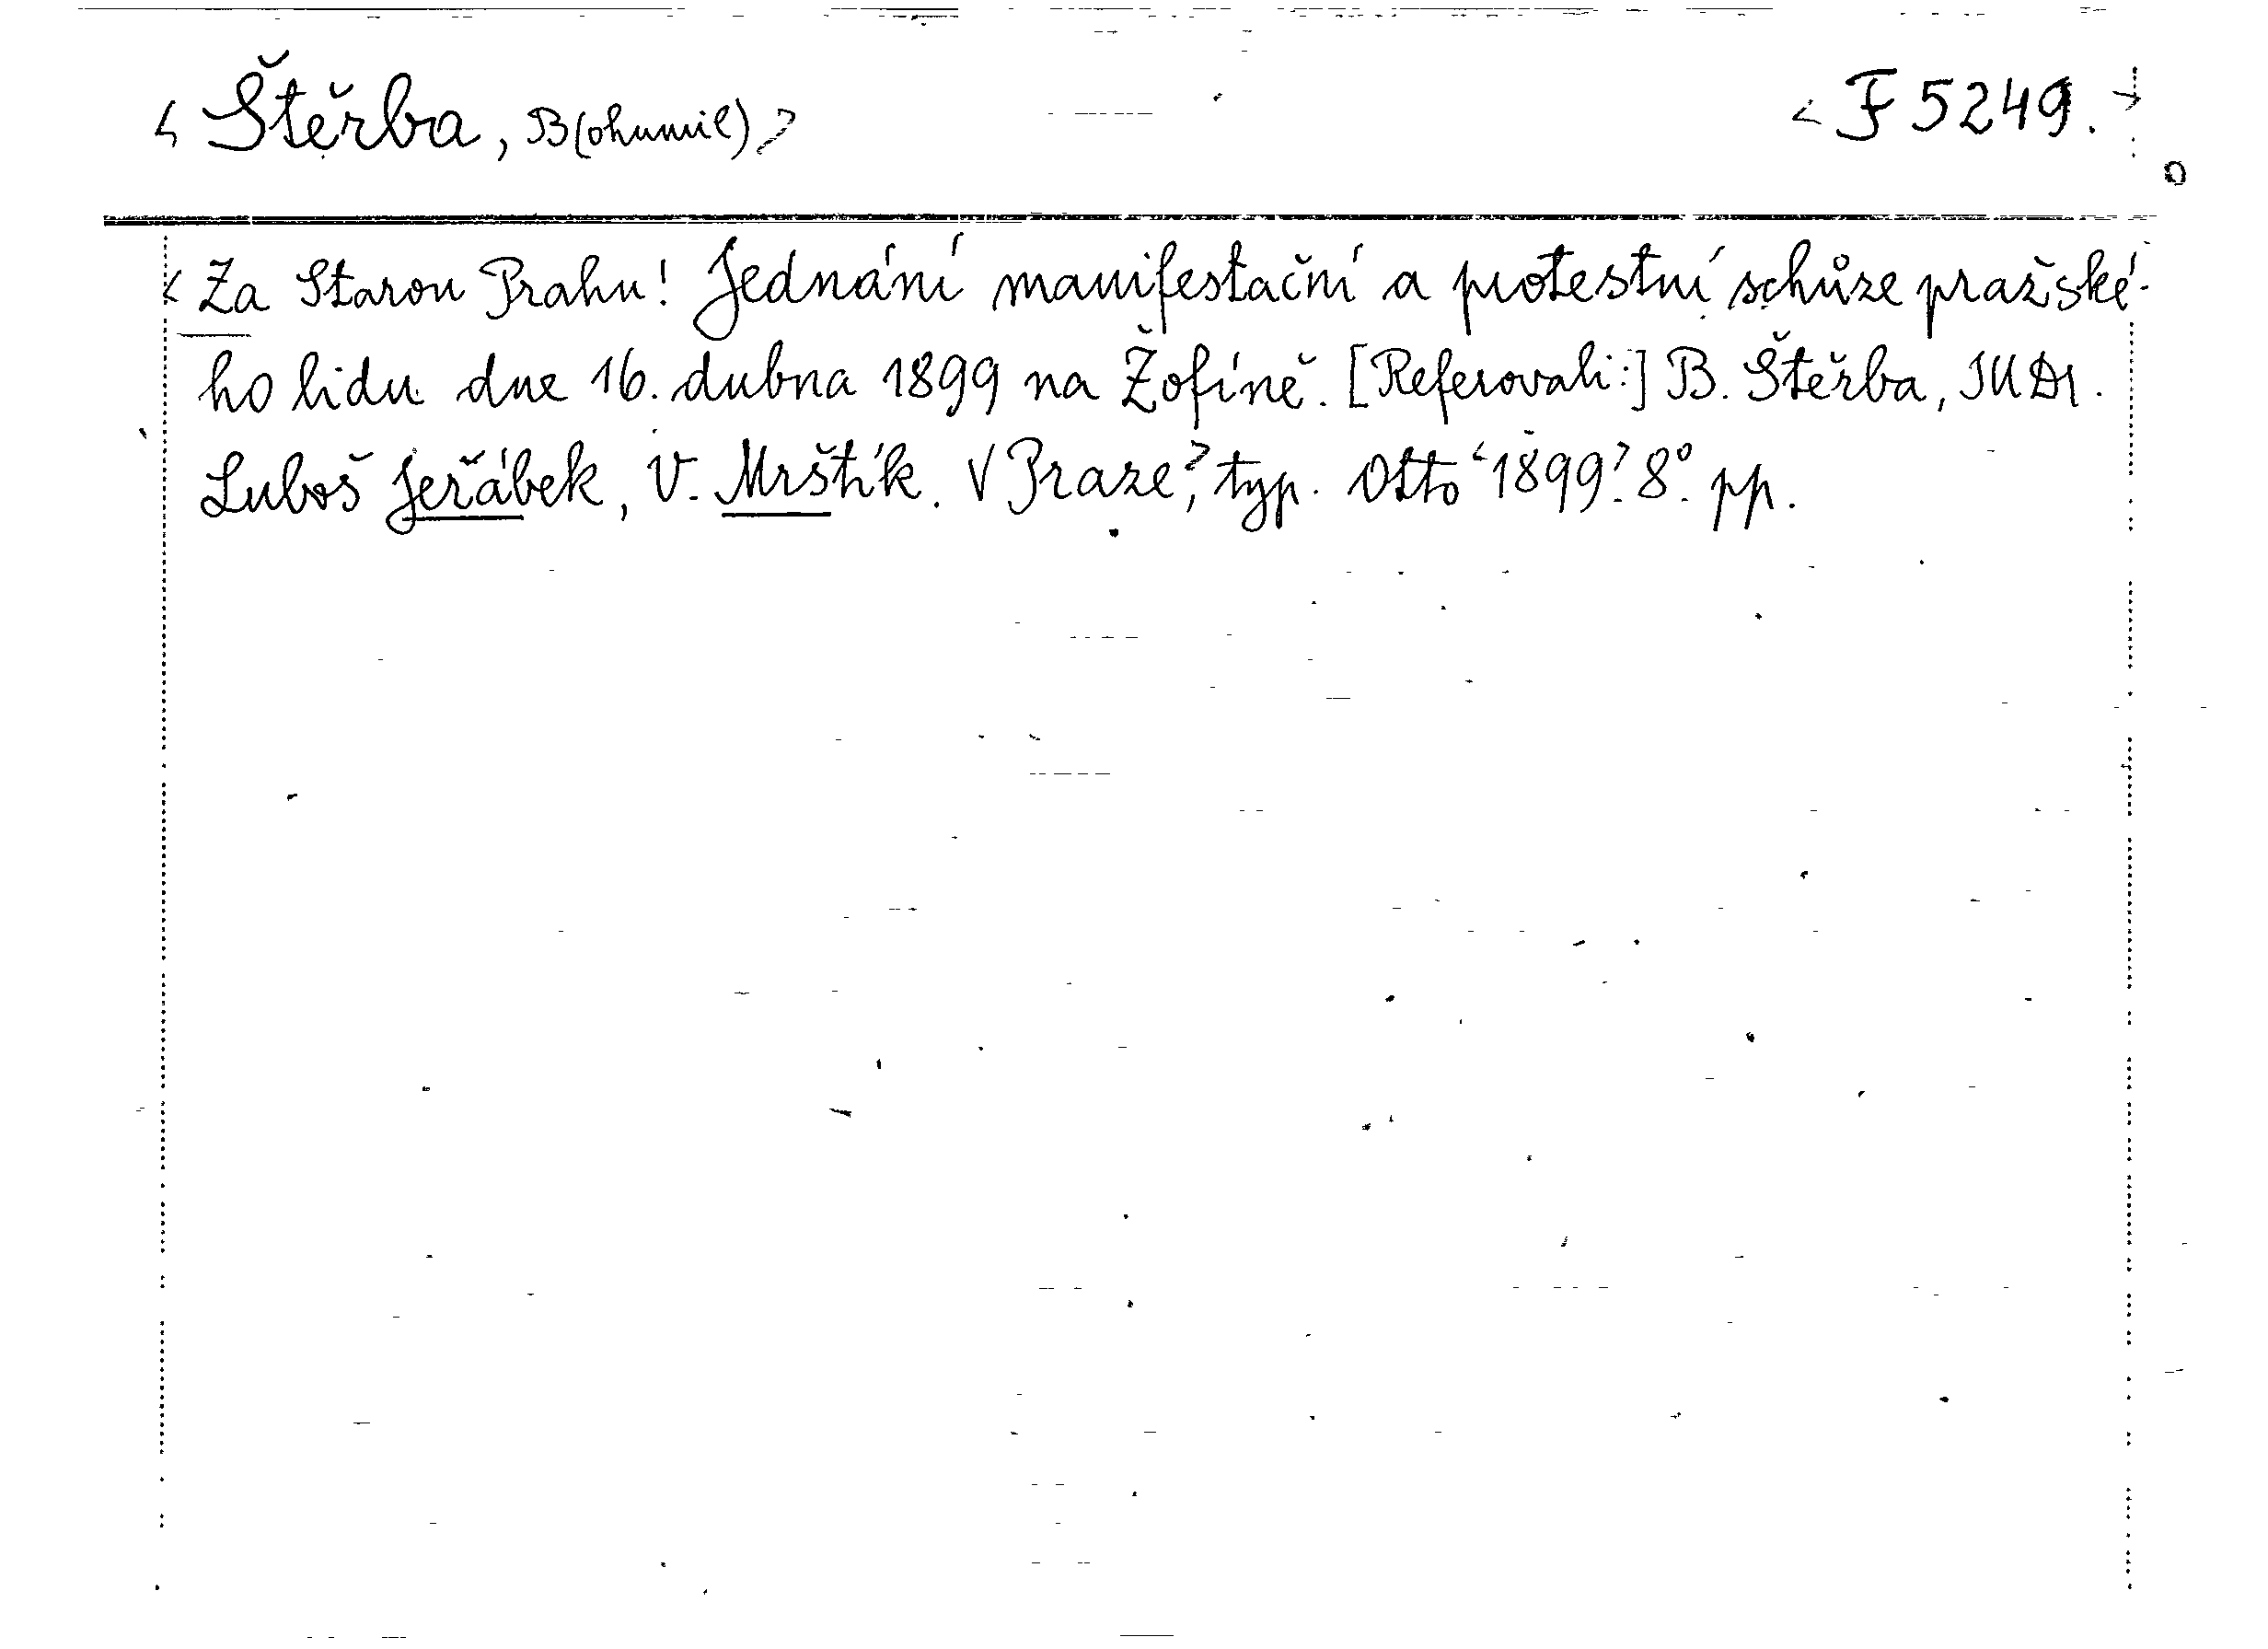 <Štěrba, B(ohumil)> <F 5249.>
<Za Starou Prahu! Jednání manifestační a protestní schůze pražské-
ho lidu dne 16. dubna 1899 na Žofíně. [Referovali:] B. Štěrba, JUDr.
Luboš Jeřábek, V. Mrštík. V Praze>, typ. Otto <1899>. 8°. pp.